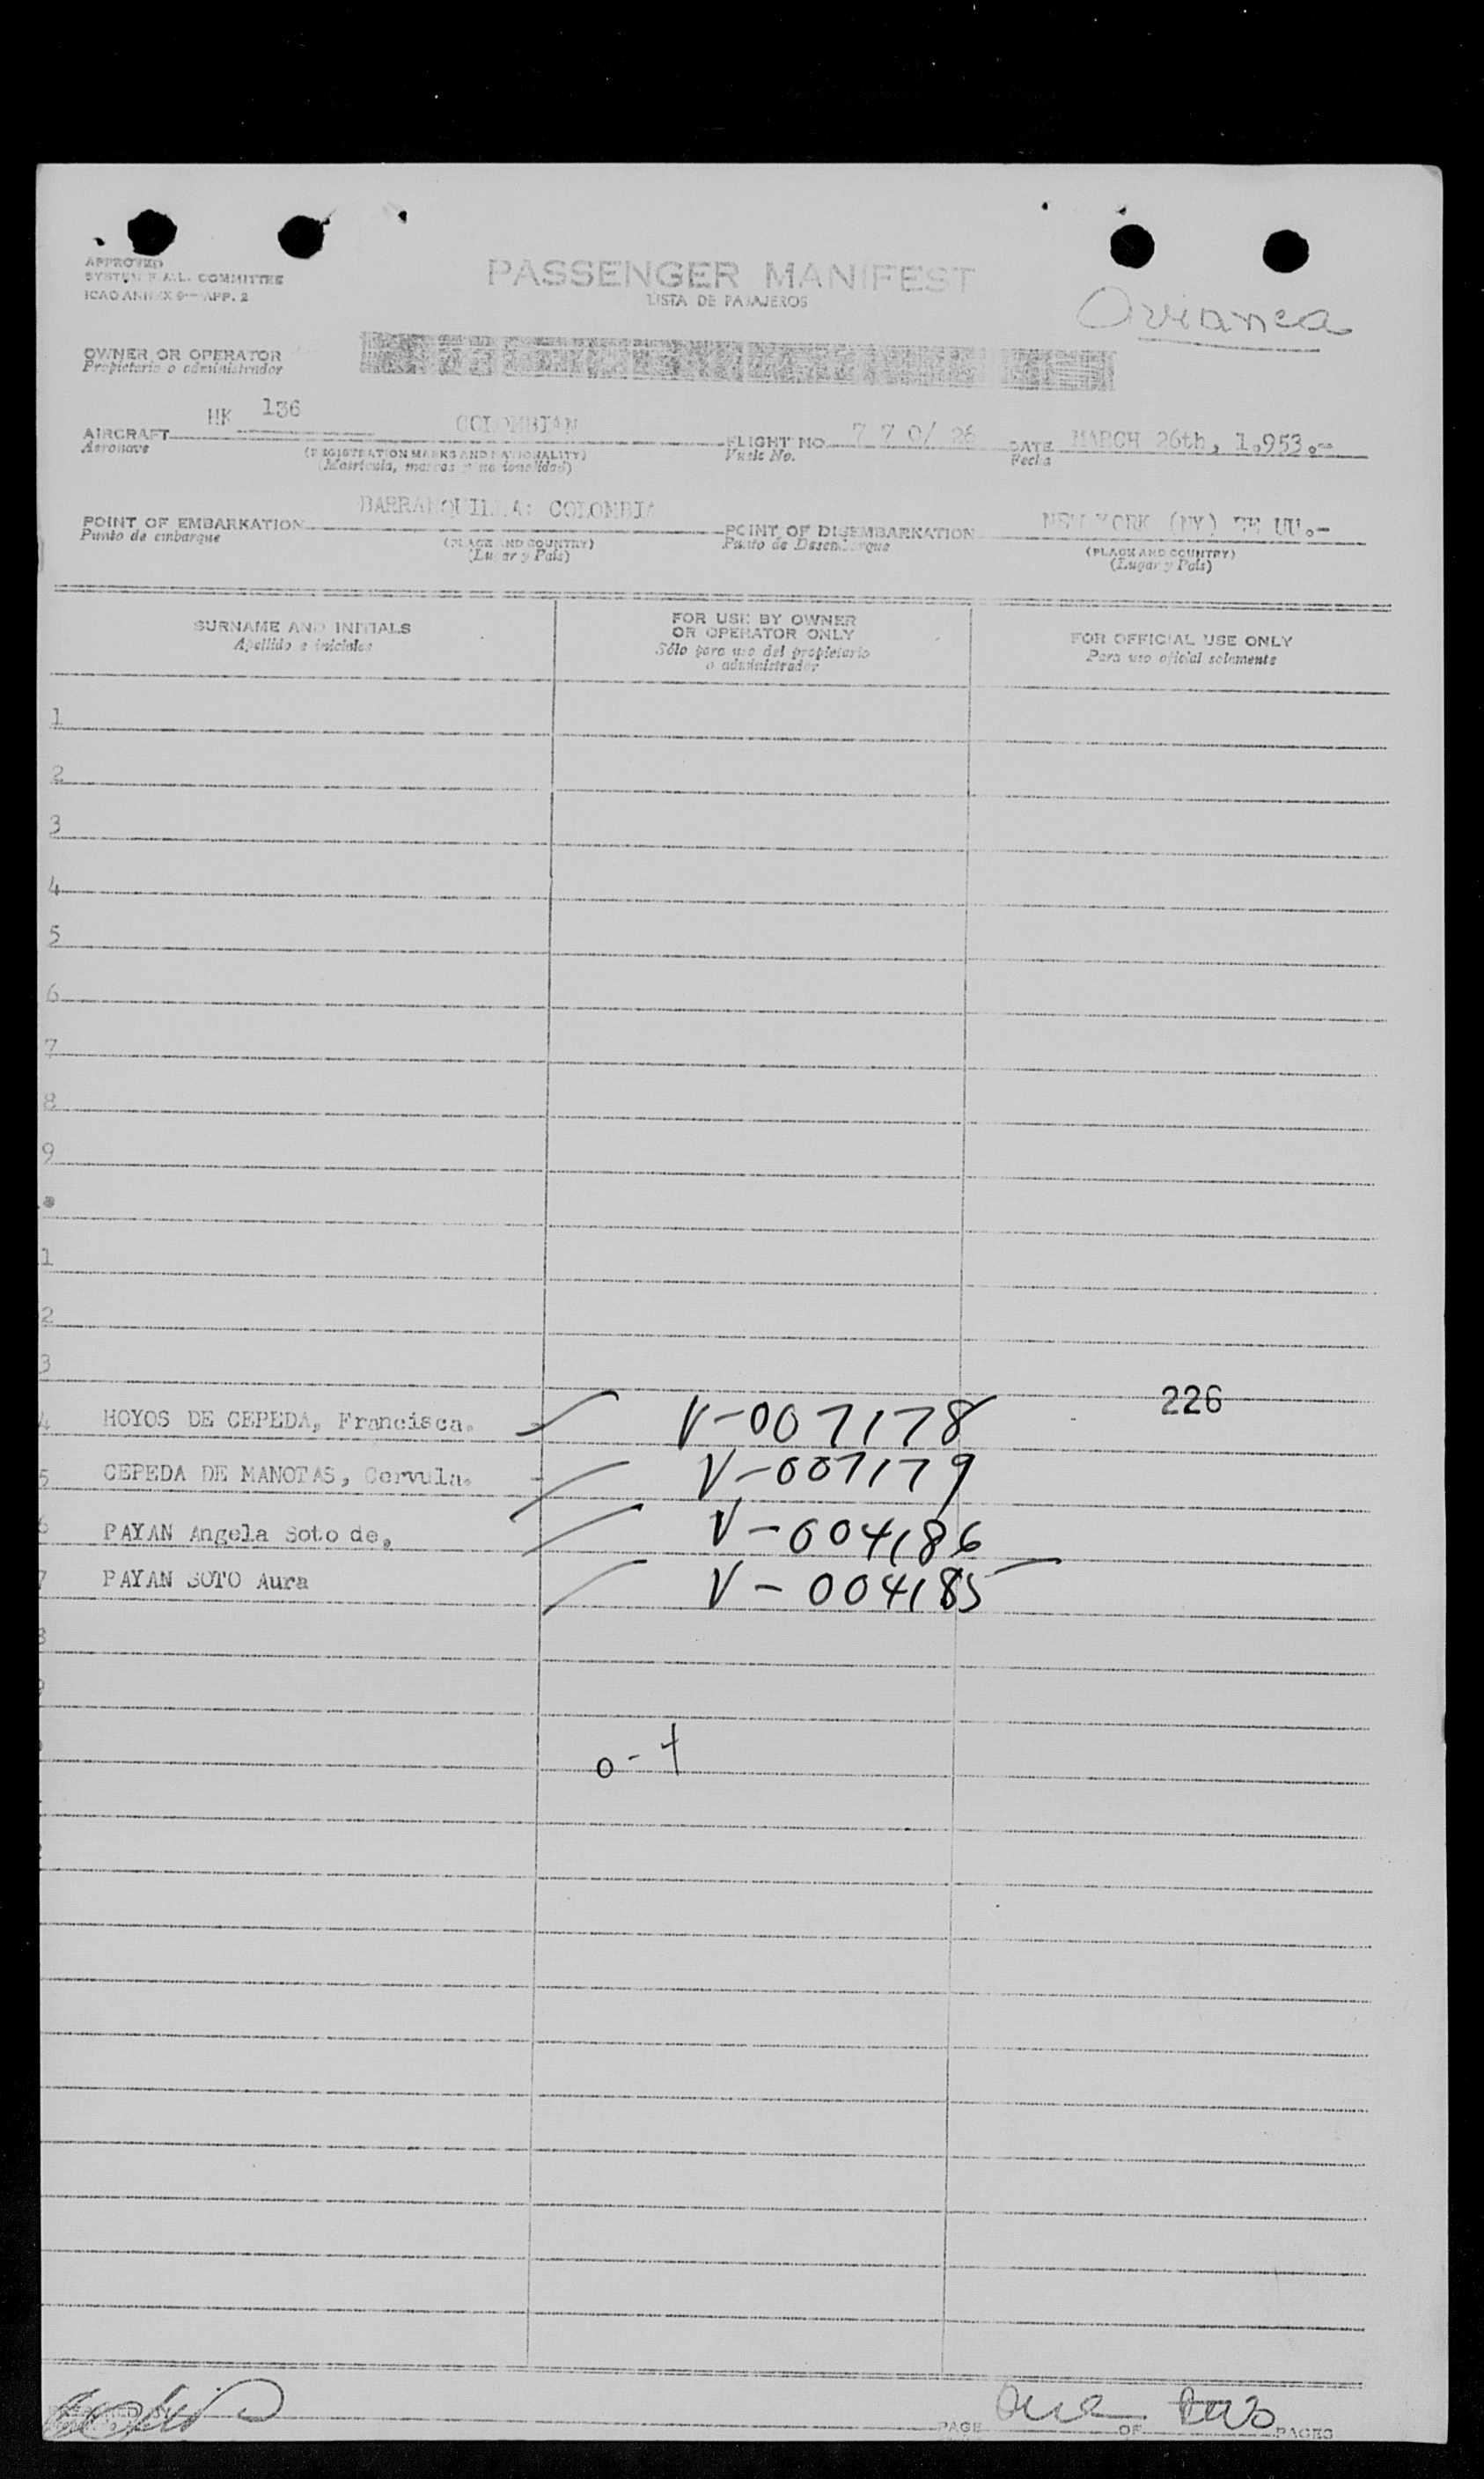 APPROVED
SYSTEM F.A.L. COMMITTEE
ICAO ANNEX 9—APP. 2
PASSENGER MANIFEST
LISTA DE PASAJEROS
Avianca
OWNER OR OPERATOR
Propietario o administrador
AIRCRAFT HK 136 COLOMBIAN FLIGHT NO. 7 7 0/ 26 DATE MARCH 26th, 1.953.-
Aeronave (REGISTRATION MARKS AND NATIONALITY) Vuelo No. Fecha
(Matrícula, marcas y nacionalidad)
POINT OF EMBARKATION BARRANQUILLA: COLOMBIA POINT OF DISEMBARKATION NEW YORK (NY) EE UU.-
Punto de embarque (PLACE AND COUNTRY) Punto de Desembarque (PLACE AND COUNTRY)
(Lugar y País) (Lugar y País)
SURNAME AND INITIALS FOR USE BY OWNER OR OPERATOR ONLY FOR OFFICIAL USE ONLY
Apellido e iniciales Sólo para uso del propietario o administrador Para uso oficial solamente
1
2
3
4
5
6
7
8
9
1
2
3
226
4 HOYOS DE CEPEDA, Francisca. V-007178
5 CEPEDA DE MANOTAS, Cervula. V-007179
6 PAYAN Angela Soto de. V-004186
7 PAYAN SOTO Aura V-004185
8
0-4
PAGE One OF two PAGES